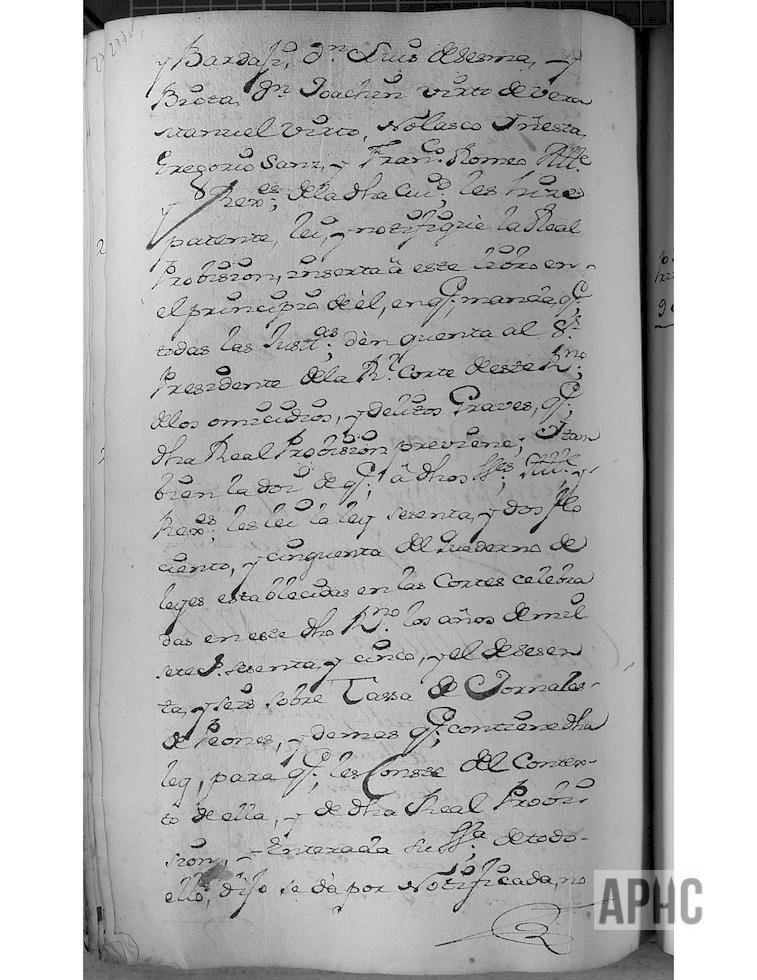 y Bardaji, Dn. Luis de Sesma, y
Biota, Dn. Joachin Virto de Vera
Manuel Virto, Nolasco Iñesta,
Gregorio Sanz, y Franco. Romeo Alle.
y Rexes. de la dha Ciud. les hice
patente, lei, y notifiquè la Real
Probision, inserta â este libro en
el principio de èl, en q.e manda, q.e
todas las Justias. dèn quenta al Sr.
Presidente de la Rl. Corte de este Rno.
de los omicidios, y delitos Graves, q.e
dha Real Probision previene; Y tam
bien la doi de q.e â dhos SSres. Alle. y
Rexes. les lei la ley sesenta, y dos, folio
ciento, y cinquenta del Quaderno de
leyes establecidas en las Cortes celebra
das en este dho Rno. los años de mil
setes. sesenta, y cinco, y el de sesen
ta, y seis sobre Tassa de Jornales
de Peones, y demas q.e contiene dha
ley, para q.e les Conste del Contex-
to de ella, y de dha Real Probi-
sion, y Enterada su SSa. de todo
ello, dijo se dà por Notificada, no
APHC